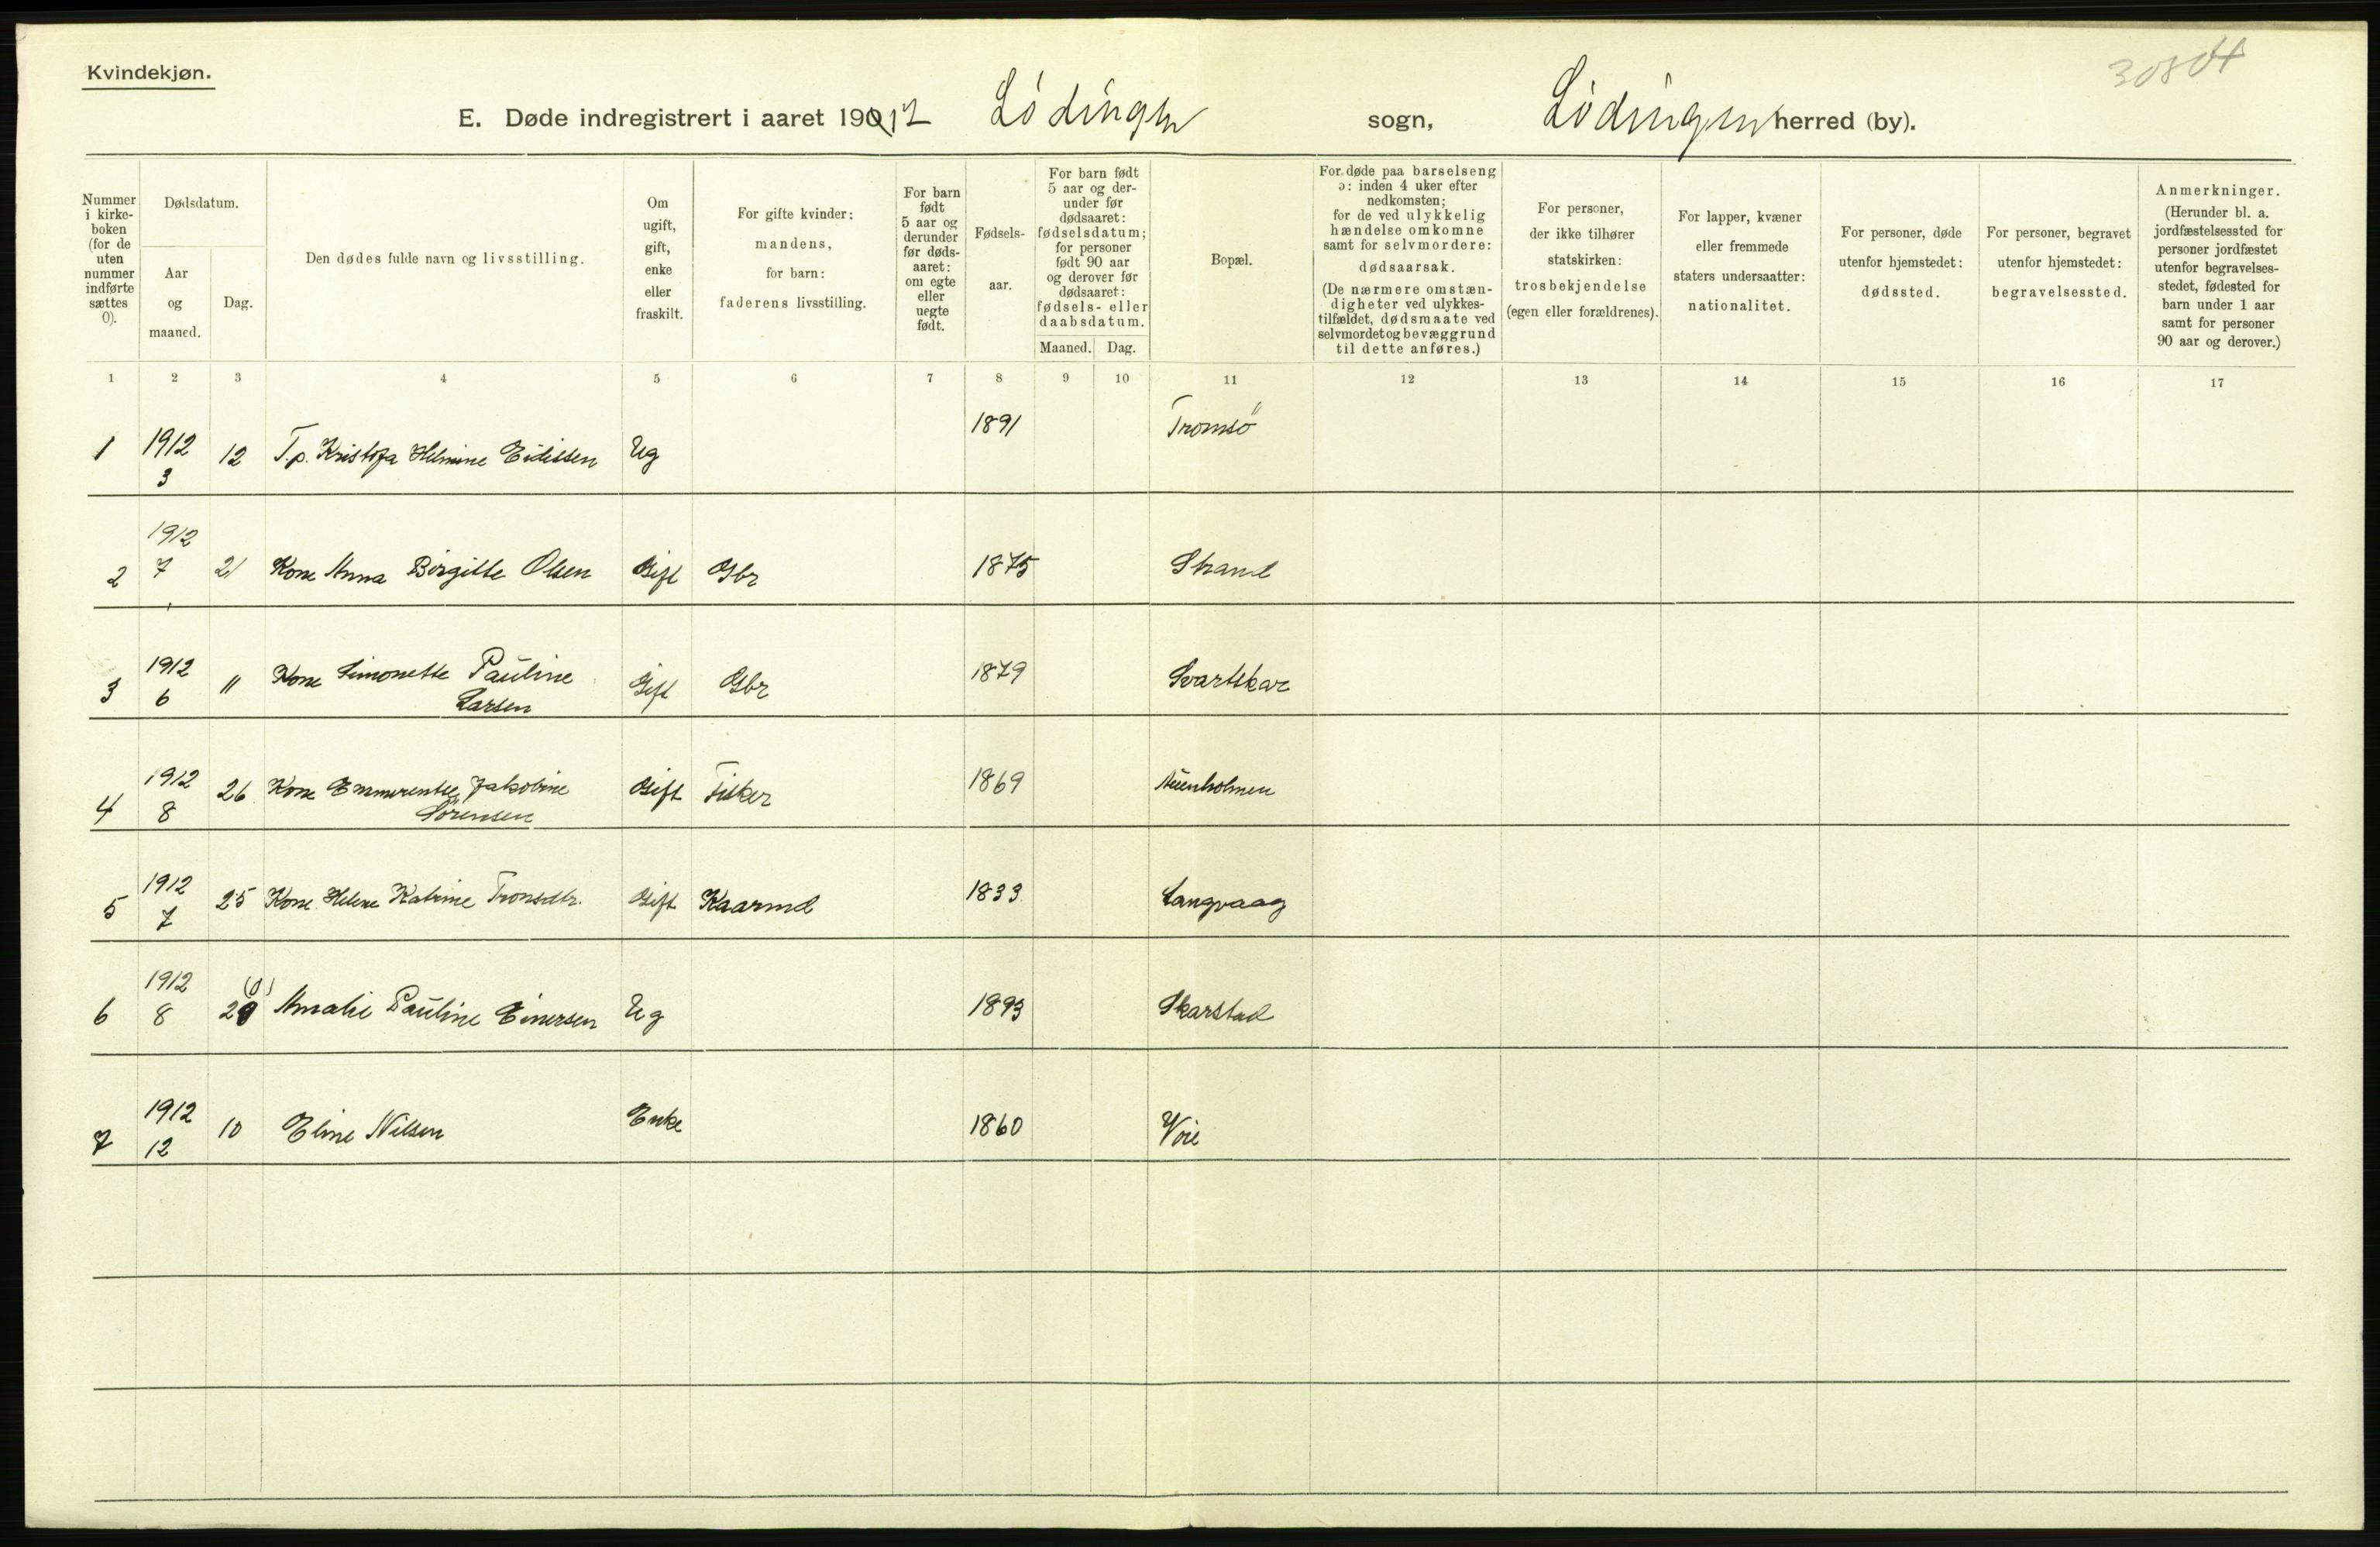 Kvindekjøn.
30804
E. Døde indregistrert i aaret 1912 Lödingen sogn, Lödingen herred (by).
Nummer i kirke-boken (for de uten nummer indførte sættes 0).
Dødsdatum.
Aar og maaned.
Dag.
Den dødes fulde navn og livsstilling.
Om ugift, gift, enke eller fraskilt.
For gifte kvinder: mandens, for barn: faderens livsstilling.
For barn født 5 aar og derunder før døds-aaret: om egte eller uegte født.
Fødsels-aar.
For barn født 5 aar og der-under før dødsaaret: fødselsdatum; for personer født 90 aar og derover før dødsaaret: fødsels- eller daabsdatum.
Maaned. Dag.
Bopæl.
For døde paa barselseng ɔ: inden 4 uker efter nedkomsten; for de ved ulykkelig hændelse omkomne samt for selvmordere: dødsaarsak. (De nærmere omstæn-digheter ved ulykkes-tilfældet, dødsmaate ved selvmordet og bevæggrund til dette anføres.)
For personer, der ikke tilhører statskirken: trosbekjendelse (egen eller forældrenes).
For lapper, kvæner eller fremmede staters undersaatter: nationalitet.
For personer, døde utenfor hjemstedet: dødssted.
For personer, begravet utenfor hjemstedet: begravelsessted.
Anmerkninger. (Herunder bl. a. jordfæstelsessted for personer jordfæstet utenfor begravelses-stedet, fødested for barn under 1 aar samt for personer 90 aar og derover.)
1 2 3 4 5 6 7 8 9 10 11 12 13 14 15 16 17
1 1912 3 12 T.p. Kristofa Helmine Eidissen Ug 1891 Tromsö
2 1912 7 21 Kone Anna Birgitte Olsen Gift Gbr 1875 Strand
3 1912 6 11 Kone Simonette Pauline Larsen Gift Gbr 1879 Svartskar
4 1912 8 26 Kone Emmerentse Jakobine Sörensen Gift Fisker 1869
5 1912 7 25 Kone Helene Katrine Tronsdtr. Gift Kaarmd 1833 Langvaag
6 1912 8 29 Amalie Pauline Einersen Ug 1893 Skarstad
7 1912 12 10 Eline Nilsen Enke 1860 Voie